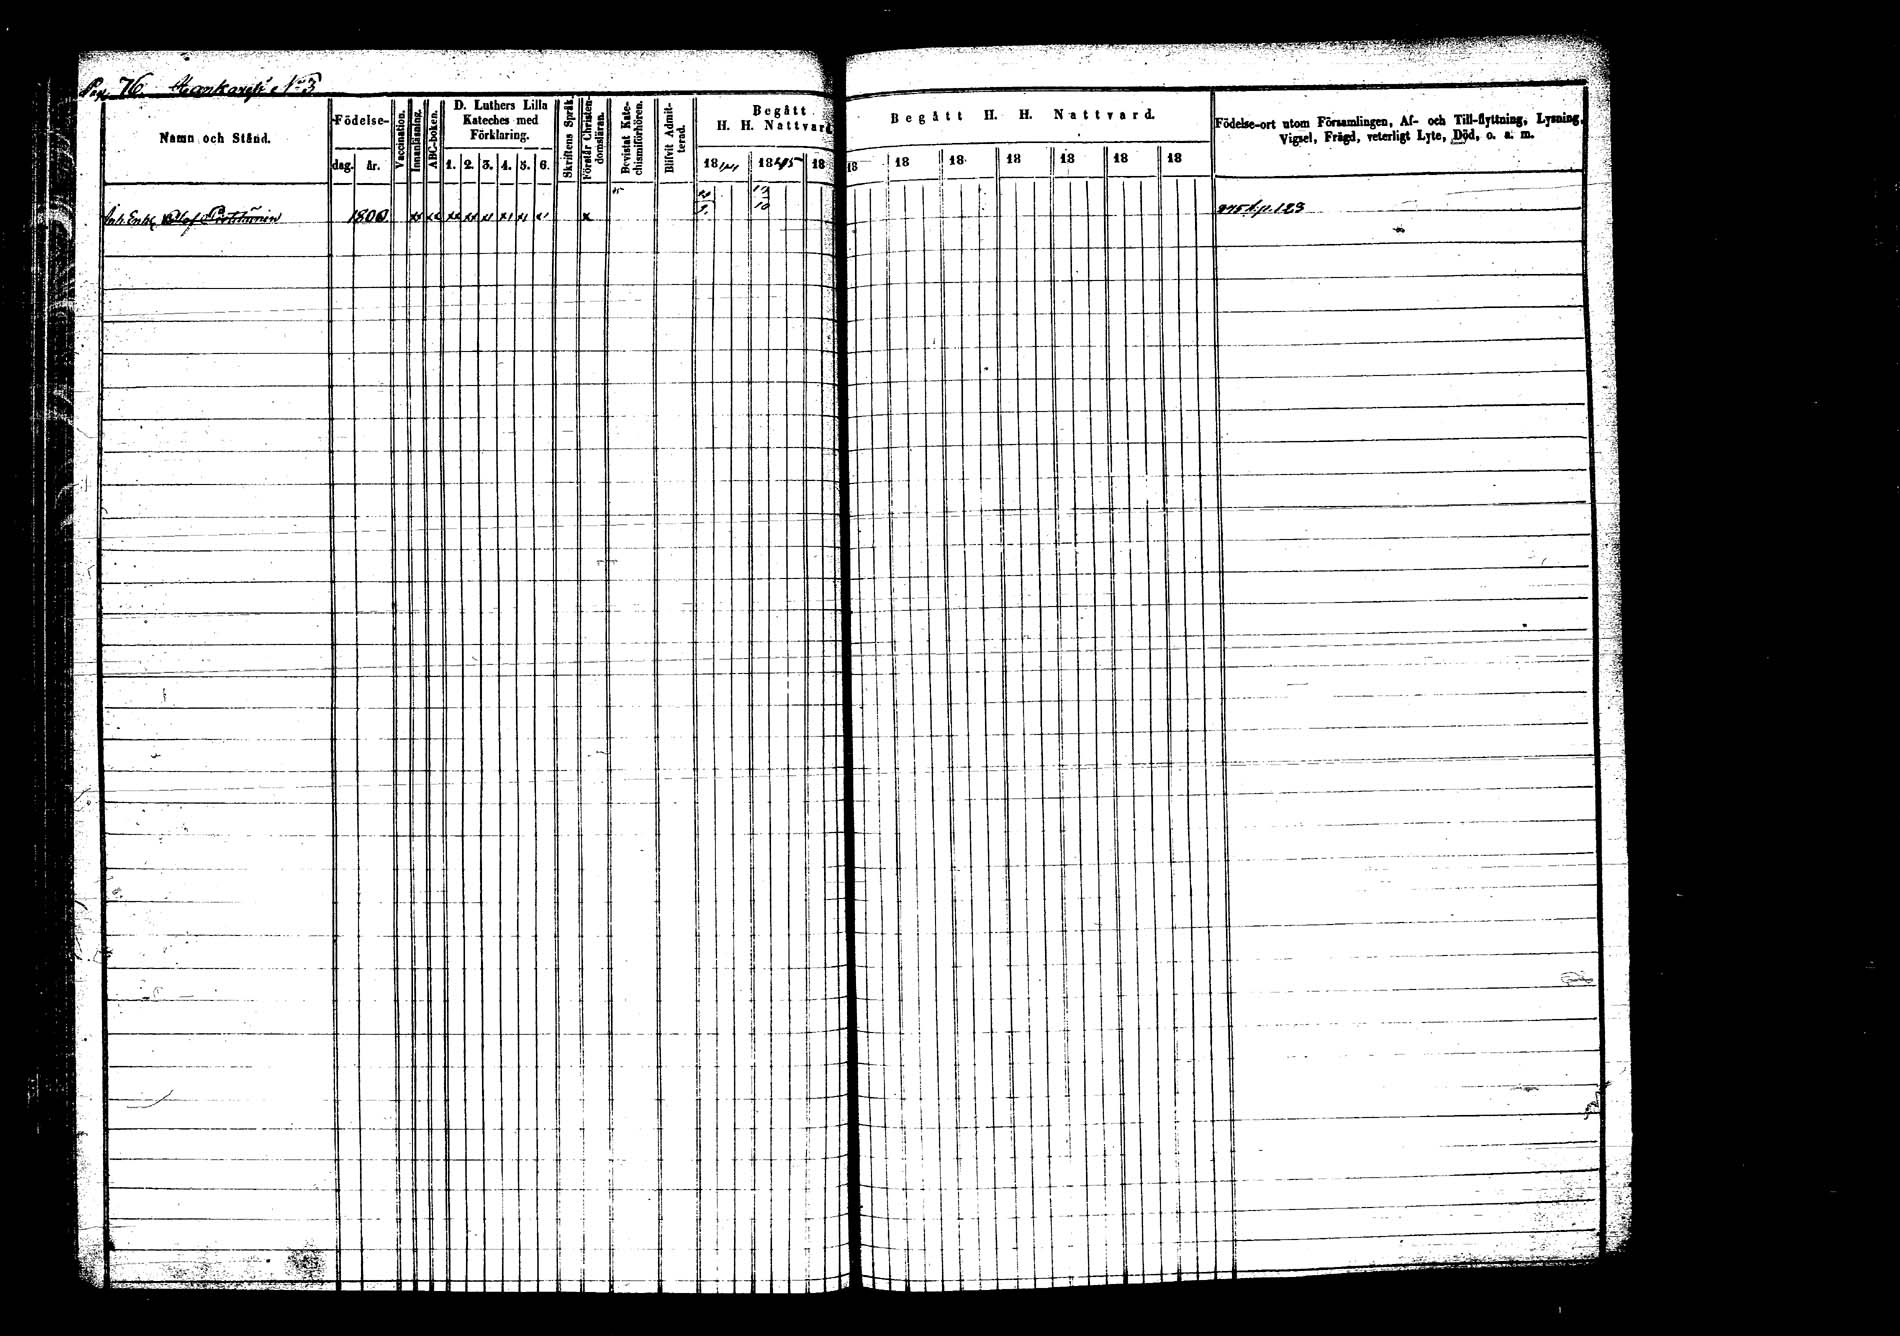 Pag. 76. Hankaregh No 3
Namn och Stånd.
Födelse-
dag. år.
Vaccination.
Innanläsning.
ABC-boken.
D. Luthers Lilla
Kateches med
Förklaring.
1. 2. 3. 4. 5. 6.
Skriftens Språk.
Förstår Christen-
domsläran.
Bevistat Kate-
chismiförhören.
Blifvit Admit-
terad.
Begått
H. H. Nattvard
18 1845 18
Begått H. H. Nattvard.
18 18 18 18 18 18 18
Födelse-ort utom Församlingen, Af- och Till-flyttning, Lysning,
Vigsel, Frägd, veterligt Lyte, Död, o. a. m.
Enk. Olof 1800 x 45 p. 123